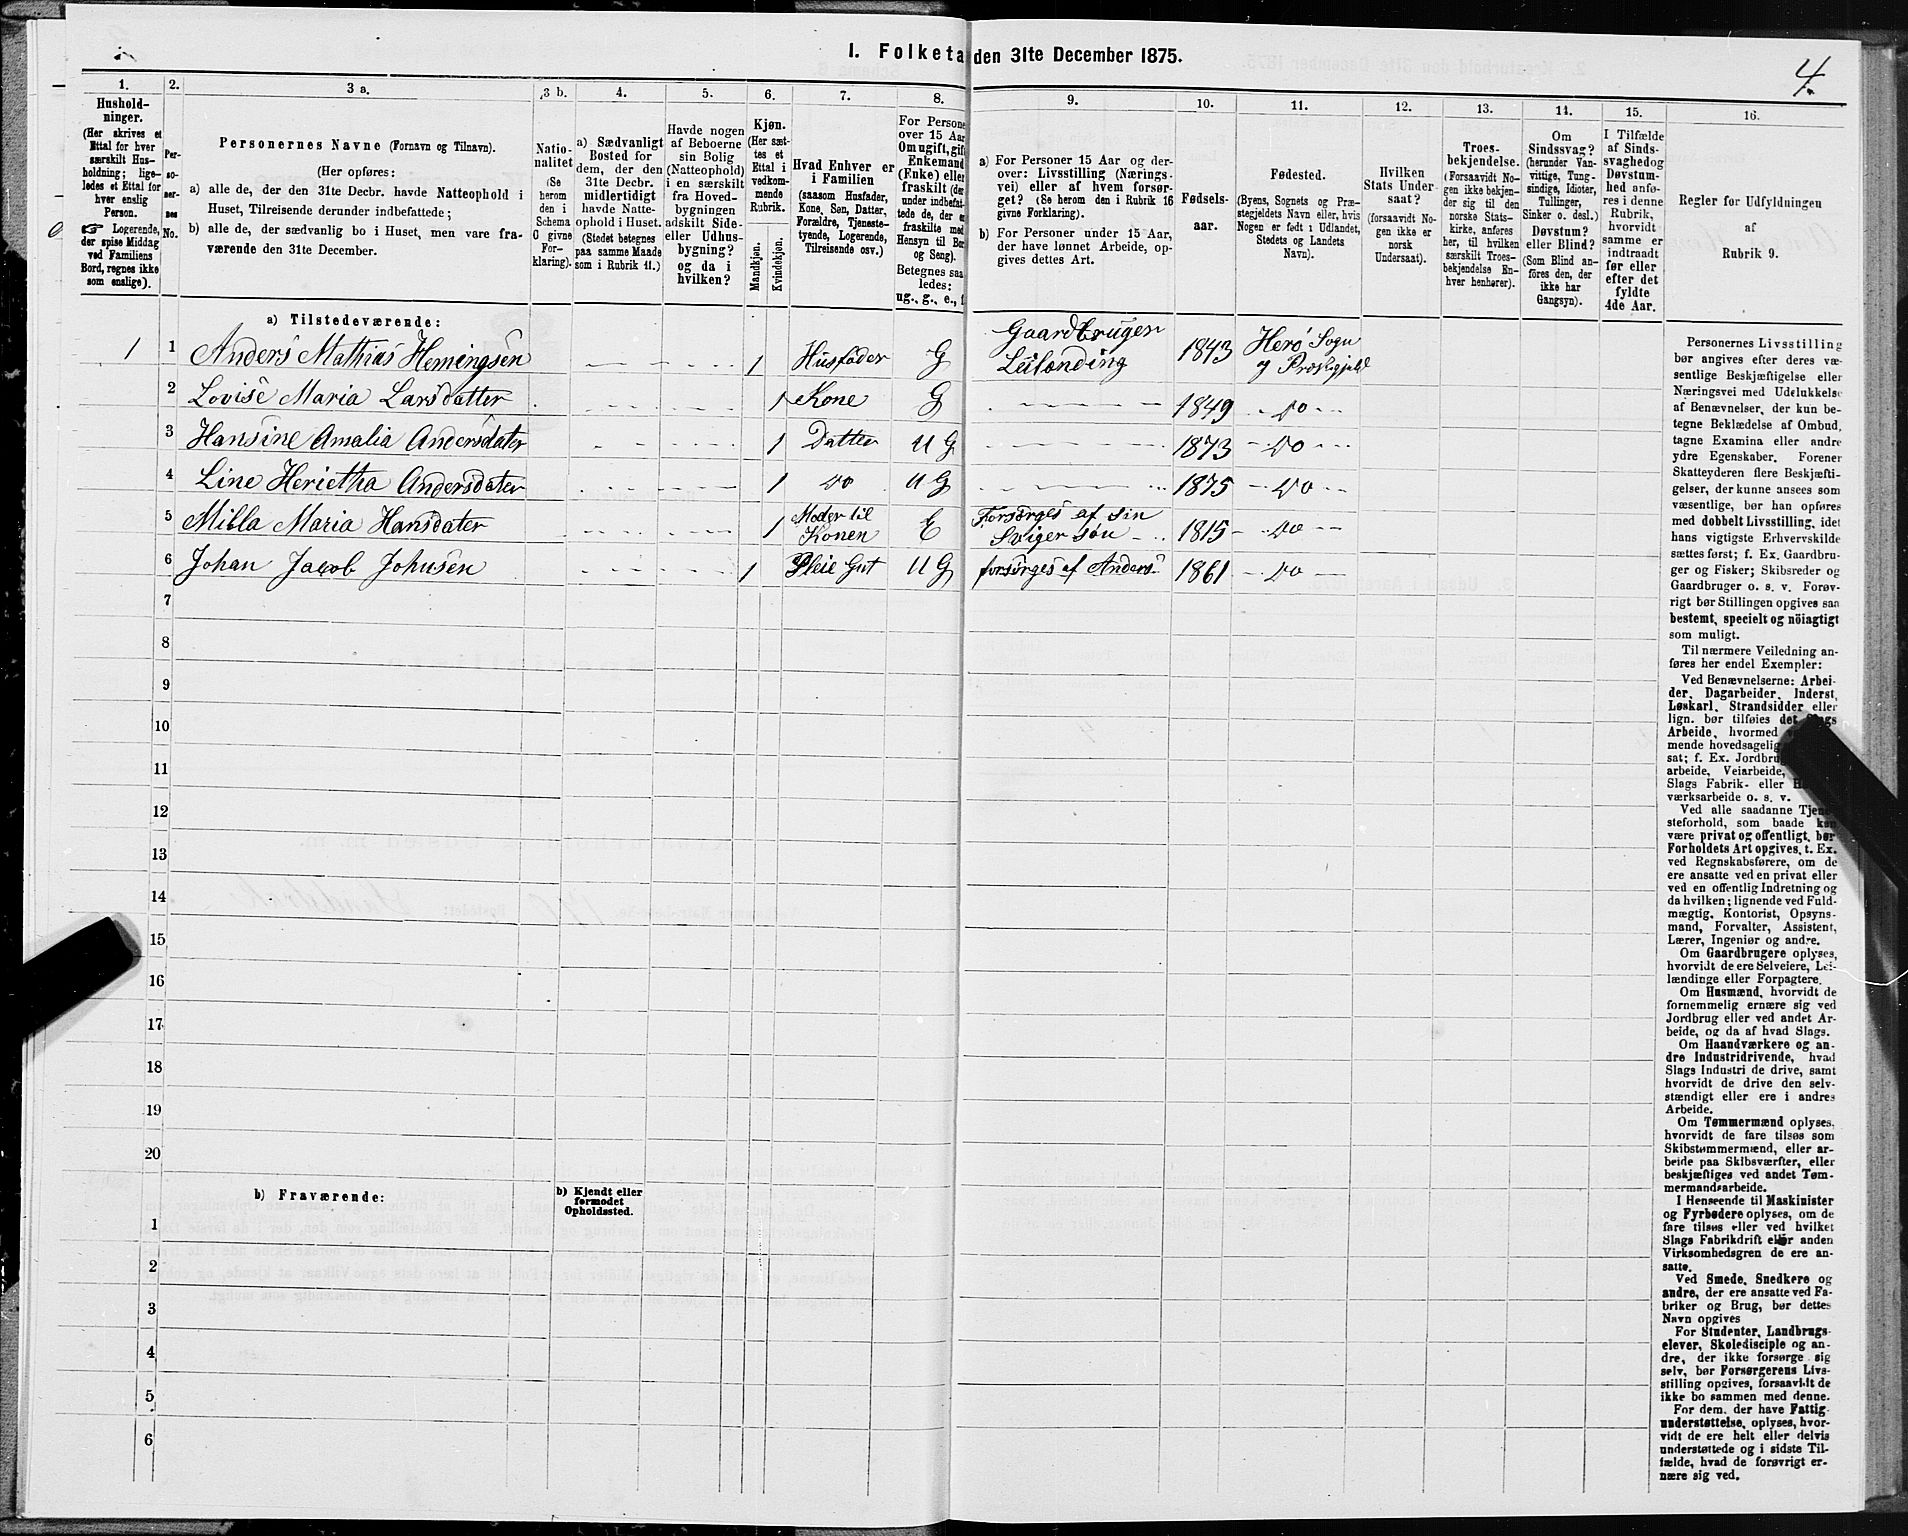 I. Folketa den 31te December 1875.
4.
1.
Hushold-
ninger.
(Her skrives et
Ettal for hver
særskilt Hus-
holdning; lige-
ledes et Ettal for
hver enslig
Person.
☞ Logerende,
der spise Middag
ved Familiens
Bord, regnes ikke
som enslige).
2.
Per-
so-
ner-
nes
No.
3 a.
Personernes Navne (Fornavn og Tilnavn).
(Her opføres:
a) alle de, der den 31te Decbr. havde Natteophold i
Huset, Tilreisende derunder indbefattede;
b) alle de, der sædvanlig bo i Huset, men vare fra-
værende den 31te December.
3 b.
Natio-
nalitet
(Se
herom
den i
Schema
C givne
For-
klaring).
4.
a) Sædvanligt
Bosted for
dem, der den
31te Decbr.
midlertidigt
havde Natte-
ophold i Huset.
(Stedet betegnes
paa samme Maade
som i Rubrik 11.)
5.
Havde nogen
af Beboerne
sin Bolig
(Natteophold)
i en særskilt
fra Hoved-
bygningen
adskilt Side-
eller Udhus-
bygning?
og da i
hvilken?
6.
Kjøn.
(Her sæt-
tes et
Ettal i
vedkom-
mende
Rubrik.
Mandkjøn.
Kvindekjøn.
7.
Hvad Enhver er
i Familien
(saasom Husfader,
Kone, Søn, Datter,
Forældre, Tjeneste-
tyende, Logerende,
Tilreisende osv.)
8.
For Persone
over 15 Aar
Om ugift, gift
Enkemand
(Enke) eller
fraskilt (der
under indbefat-
tede de, der er
fraskilte med
Hensyn til Bor
og Seng).
Betegnes saa
ledes:
ug., g., e., f.
9.
a) For Personer 15 Aar og der-
over: Livsstilling (Nærings-
vei) eller af hvem forsør-
get? (Se herom den i Rubrik 16
givne Forklaring).
b) For Personer under 15 Aar,
der have lønnet Arbeide, op-
gives dettes Art.
10.
Fødsels-
aar.
11.
Fødested.
(Byens, Sognets og Præ-
stegjeldets Navn eller, hvis
Nogen er født i Udlandet,
Stedets og Landets
Navn).
12.
Hvilken
Stats Under-
saat?
(forsaavidt No-
gen ikke er
norsk
Undersaat).
13.
Troes-
bekjendelse.
(Forsaavidt No-
gen ikke bekjen-
der sig til den
norske Stats-
kirke, anføres
her, til hvilken
særskilt Troes-
bekjendelse En-
hver henhører).
14.
Om
Sindssvag?
(herunder Van-
vittige, Tung-
sindige, Idioter,
Tullinger,
Sinker o. desl.)
Døvstum?
eller Blind?
(Som Blind an-
føres den, der
ikke har
Gangsyn).
15.
I Tilfælde
af Sinds-
svaghed og
Døvstum-
hed anfø-
res i denne
Rubrik,
hvorvidt
samme er
indtraadt
før eller
efter det
fyldte
4de Aar.
16.
Regler for Udfyldningen
af
Rubrik 9.
a) Tilstedeværende:
1 1 Anders Mathias Hemingsen 1 Husfader G Gaardbruger Leilænding 1843 Herø Sogn og Præstgjeld
2 Lovise Maria Larsdatter 1 Kone G 1849 Do
3 Hansine Amalia Andersdater 1 Datter U G 1873 Do
4 Line Herietha Andersdater 1 Do U G 1875 Do
5 Milla Maria Hansdater 1 Moder til Konen E Forsørges af sin Sviger søn 1815 Do
6 Johan Jacob Johnsen 1 Pleie Gut U G forsørges af Anders 1861 Do
7
8
9
10
11
12
13
14
15
16
17
18
19
20
b) Fraværende:
b) Kjendt eller
formodet
Opholdssted.
1
2
3
4
5
6
Personernes Livsstilling
bør angives efter deres væ-
sentlige Beskjæftigelse eller
Næringsvei med Udelukkelse
af Benævnelser, der kun be-
tegne Beklædelse af Ombud,
tagne Examina eller andre
ydre Egenskaber. Forener
Skatteyderen flere Beskjæfti-
gelser, der kunne ansees som
væsentlige, bør han opføres
med dobbelt Livsstilling, idet
hans vigtigste Erhvervskilde
sættes først; f. Ex. Gaardbru-
ger og Fisker; Skibsreder og
Gaardbruger o. s. v. Forøv-
rigt bør Stillingen opgives saa
bestemt, specielt og nöiagtigt
som muligt.
Til nærmere Veiledning an-
føres her endel Exempler:
Ved Benævnelserne: Arbei-
der, Dagarbeider, Inderst,
Løskarl, Strandsidder eller
lign. bør tilføies det Slags
Arbeide, hvormed
mende hovedsagelig
sat; f. Ex. Jordbru
arbeide, Veiarbeide,
Slags Fabrik- eller H
værksarbeide o. s. v.
Ved alle saadanne Tjene
steforhold, som baade kan
være privat og offentligt, bør
Forholdets Art opgives, t. Ex.
ved Regnskabsførere, om de
ere ansatte ved en privat eller
ved en offentlig Indretning og
da hvilken; lignende ved Fuld-
mægtig, Kontorist, Opsyns-
mand, Forvalter, Assistent,
Lærer, Ingeniør og andre.
Om Gaardbrugere oplyses,
hvorvidt de ere Selveiere, Lei-
lændinge eller Forpagtere.
Om Husmænd, hvorvidt de
fornemmelig ernære sig ved
Jordbrug eller ved andet Ar-
beide, og da af hvad Slags.
Om Haandværkere og an-
dre Industridrivende, hvad
Slags Industri de drive, samt
hvorvidt de drive den selv-
stændigt eller ere i andres
Arbeide.
Om Tømmermænd oplyses,
hvorvidt de fare tilsøs som
Skibstømmermænd, eller ar-
beide paa Skibsværfter, eller
beskjæftiges ved andet Tøm-
mermandsarbeide.
I Henseende til Maskinister
og Fyrbødere oplyses, om de
fare tilsøs eller ved hvilket
Slags Fabrikdrift eller anden
Virksomhedsgren de ere an-
satte.
Ved Smede, Snedkere og
andre, der ere ansatte ved Fa-
briker og Brug, bør dettes
Navn opgives
For Studenter, Landbrugs-
elever, Skoledisciple og an-
dre, der ikke forsørge sig
selv, bør Forsørgerens Livs-
stilling opgives, forsaavidt de
ikke bo sammen med denne.
For dem, der have Fattig-
understøttelse, oplyses, hvor-
vidt de ere helt eller delvis
understøttede og i sidste Til-
fælde, hvad de forøvrigt er-
nære sig ved.